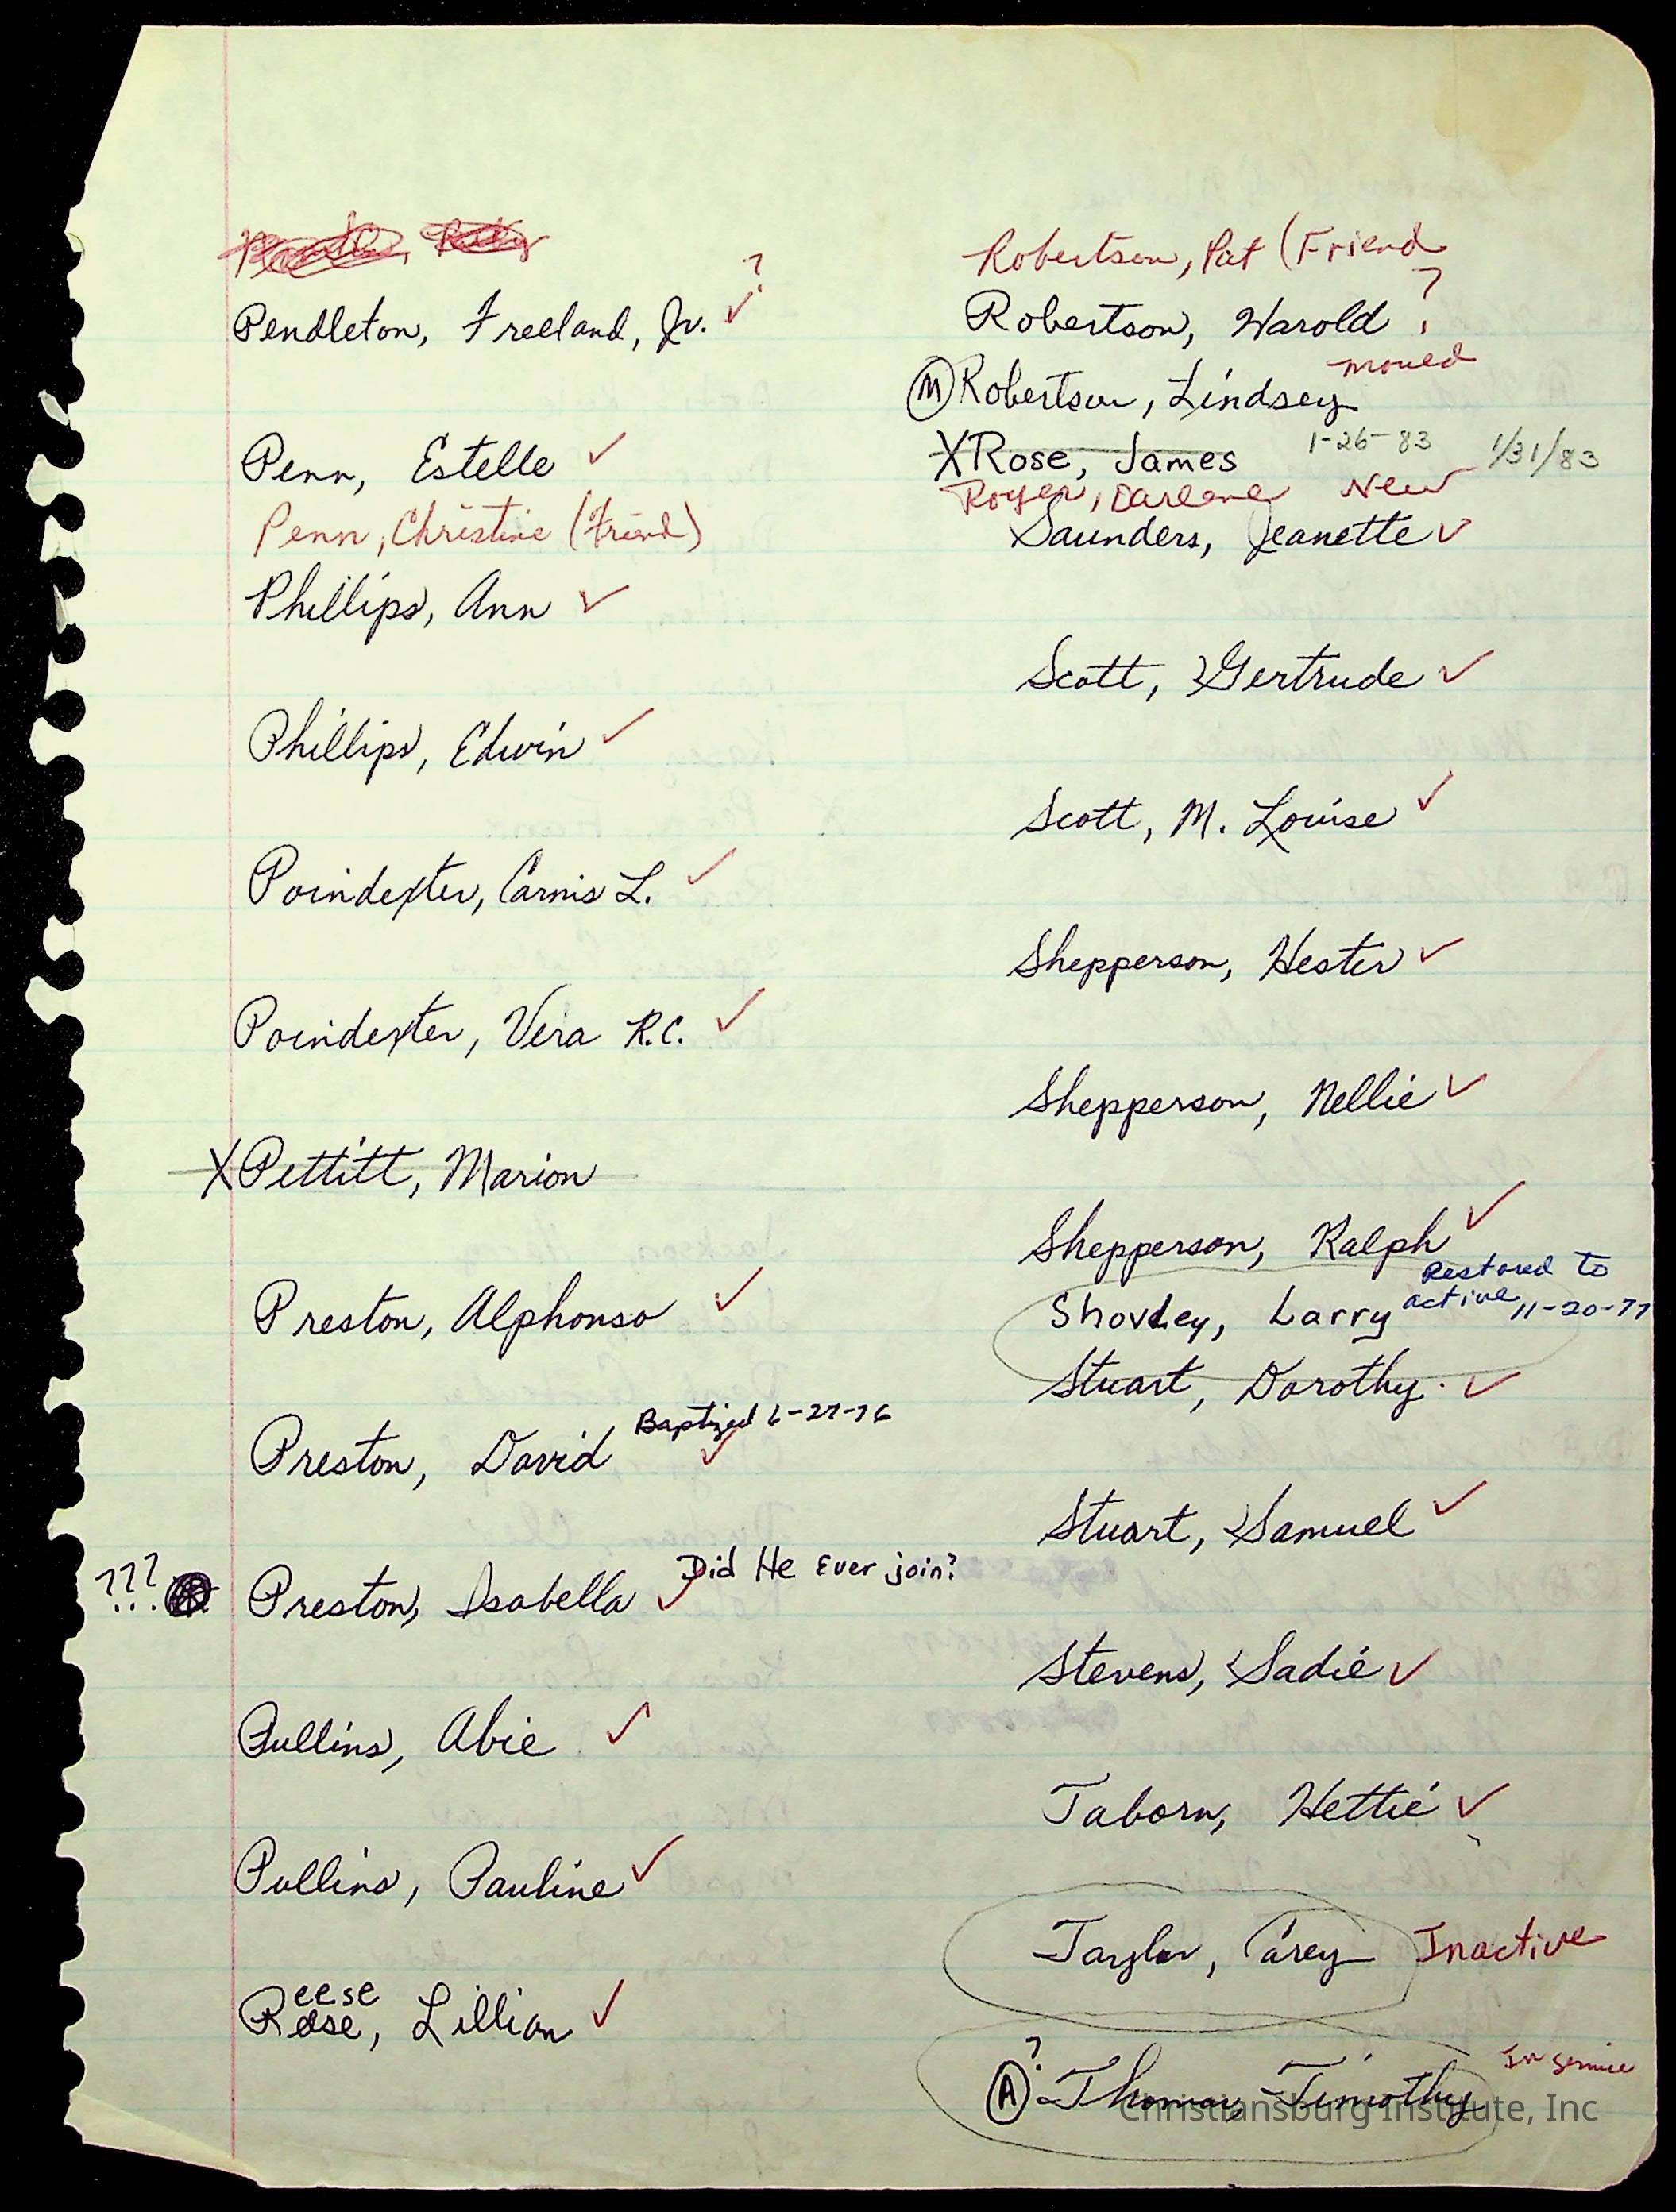 Pendleton, Freeland, Jr. ✓ ?
Penn, Estelle ✓
Penn, Christine (Friend)
Phillips, Ann ✓
Phillips, Edwin ✓
Poindexter, Carnis L. ✓
Poindexter, Vera R.C. ✓
X Pettitt, Marion
Preston, Alphonso ✓
Preston, David ✓ Baptized 6-27-76
??? Preston, Isabella ✓ Did He Ever join?
Pullins, Abie ✓
Pullins, Pauline ✓
eese
Reese, Lillian ✓
Robertson, Pat (Friend
Robertson, Harold ?
(M) Robertson, Lindsey moved
X Rose, James 1-26-83 1/31/83
Royer, Darlene New
Saunders, Jeanette ✓
Scott, Gertrude ✓
Scott, M. Louise ✓
Shepperson, Hester ✓
Shepperson, Nellie ✓
Shepperson, Ralph ✓
Shovley, Larry Restored to
active, 11-20-77
Stuart, Dorothy. ✓
Stuart, Samuel ✓
Stevens, Sadie ✓
Taborn, Hettie ✓
Taylor, Carey Inactive
(A) ? Thomas, Timothy In Service
Christiansburg Institute, Inc